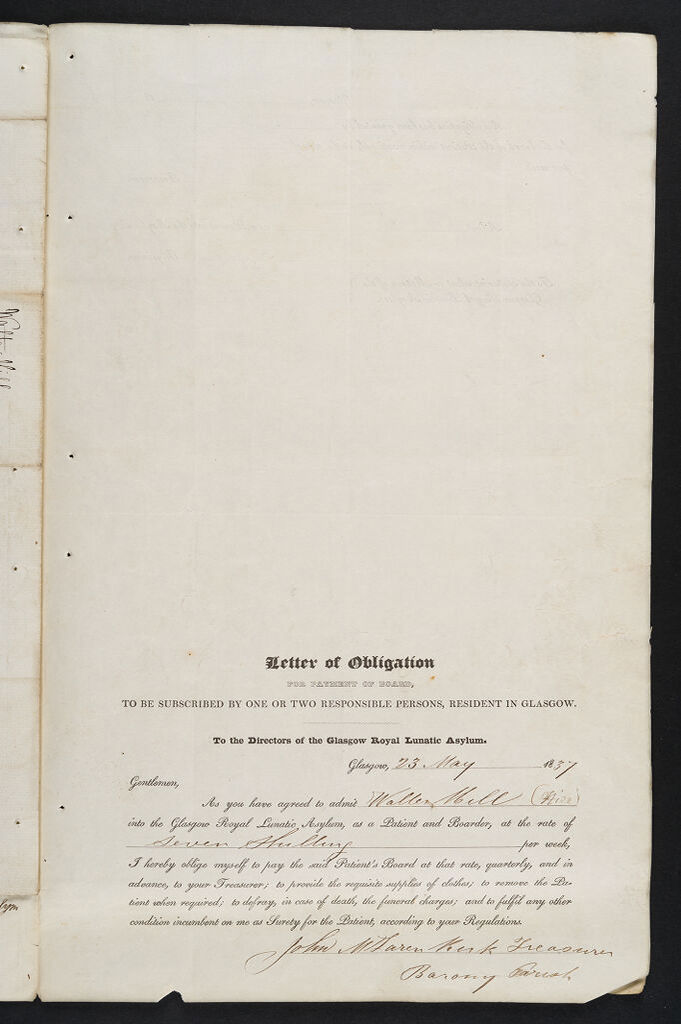 Letter of Obligation
FOR PAYMENT OF BOARD,
TO BE SUBSCRIBED BY ONE OR TWO RESPONSIBLE PERSONS, RESIDENT IN GLASGOW.
To the Directors of the Glasgow Royal Lunatic Asylum.
Glasgow, 23 May 1837
Gentlemen,
As you have agreed to admit Walter Mill
into the Glasgow Royal Lunatic Asylum, as a Patient and Boarder, at the rate of
Seven Shilling per week,
I hereby oblige myself to pay the said Patient's Board at that rate, quarterly, and in
advance, to your Treasurer; to provide the requisite supplies of clothes; to remove the Pa-
tient when required; to defray, in case of death, the funeral charges; and to fulfil any other
condition incumbent on me as Surety for the Patient, according to your Regulations.
John McLaren Kirk Treasurer
Barony Parish
Walter Mill